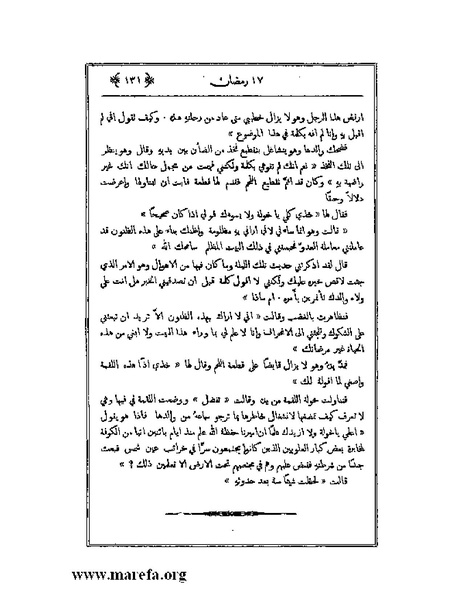 ١٧ رمضان ﴿ ١٣١ ﴾
ارفض هذا الرجل وهو لا يزال خطيبي متى عاد من رحلته هذه . وكيف نقول اني لم
اقبل به وانا لم افه بكلمة في هذا الموضوع »
فضحك والدها وهو يتشاغل بتقطيع فخذ من الضأن بين يديه وقال وهو ينظر
الى تلك الفخذ « نعم انك لم تفوهي بكلمة ولكنني فهمت من مجمل حالك انك غير
راضية به » وكان قد اتم تقطيع اللحم فقدم لها قطعة فأبت ان تتناولها واعرضت
دلالاً وحنقًا
فقال لها « خذي كلي يا خولة ولا يسوءك قولي اذا كان صحيحًا »
« قالت وهو انما ساءني لاني اراني به مظلومة واظنك بناء على هذه الظنون قد
عاملتني معاملة العدو فحبستني في ذلك البيت المظلم سامحك الله »
قال لقد اذكرتني حديث تلك الليلة وما كان فيها من الاهوال وهو الامر الذي
جئت لاقص خبره عليك ولكنني لا اقول كلمة قبل ان تصدقيني الخبر هل انت على
ولاء والدك تأتمرين بأمره . ام ماذا »
فتظاهرت بالغضب وقالت « الي لا اراك بهذه الظنون الا تريد ان تبعثني
على الشكوك وتلجئني الى الانحراف وانا لا علم لي بما وراء هذا البيت ولا ابتغي من هذه
الحياة غير مرضاتك »
فمد يده وهو لا يزال قابضًا على قطعة اللحم وقال لها « خذي اذًا هذه اللقمة
واصغي لما اقوله لك »
فتناولت خولة اللقمة من يده وقالت « تفضل » ووضعت اللقمة في فيها وهي
لا تعرف كيف تمضغها لانشغال خاطرها بما ترجو سماعه من والدها فاذا هو يقول
« اعلمي يا خولة ولا ازيدك علمًا ان اميرنا حفظه الله علم منذ ايام بائتين اتيا من الكوفة
لمخابرة بعض كبار العلويين الذين كانوا يجتمعون سرًا في خرائب عين شمس فبعث
جندًا من شرطته فقبض عليهم وهم في مجتمعهم تحت الارض الا تعلمين ذلك ؟ »
قالت « لحظت شيئًا منه بعد حدوثه »
www.marefa.org